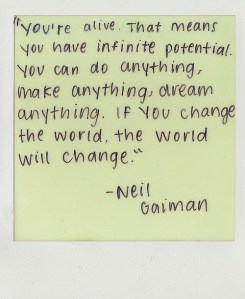 "You're alive. That means
you have infinite potential.
You can do anything,
make anything, dream
anything. If you change
the world, the world
will change."
-Neil
Gaiman